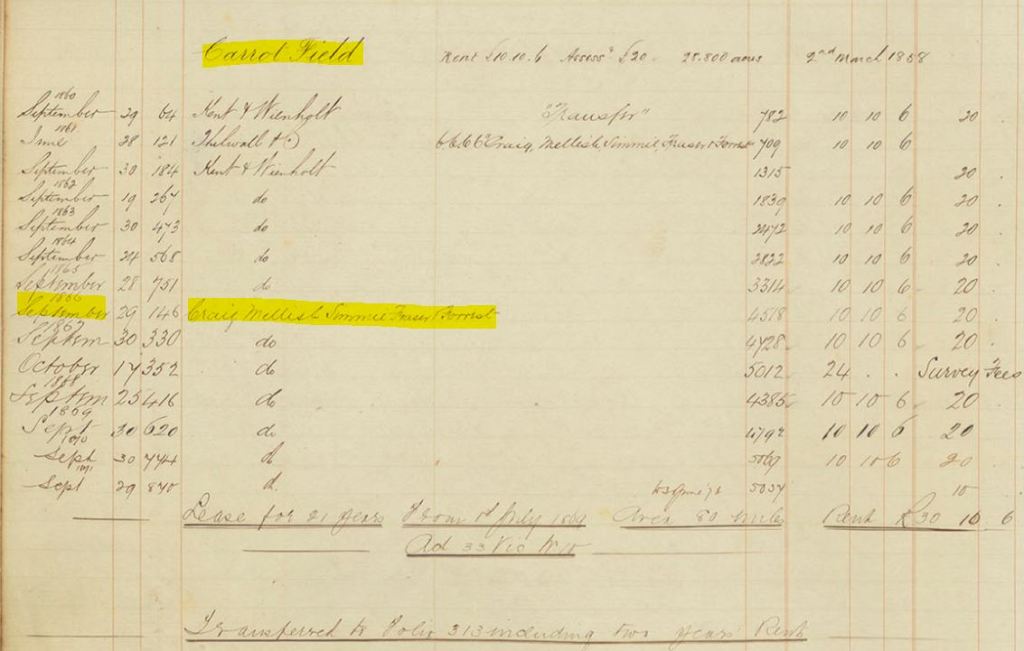 Carrot Field Rent £10.10.6 Assess^t £20 28.800 acres 2nd March 1858
1860
September 29 64 Kent & Wienholt "Transfer" 782 10 10 6 20
1861
June 28 121 Thelwall & 6666 Craig, Mellish, Simmie, Fraser & Forrest 709 10 10 6
September 30 184 Kent & Wienholt 1315 20
1862
September 19 267 do 1839 10 10 6 20
1863
September 30 473 do 2472 10 10 6 20
1864
September 24 568 do 2822 10 10 6 20
1865
September 28 751 do 3314 10 10 6 20
1866
September 29 146 Craig Mellish Simmie Fraser Forrest 4518 10 10 6 20
1867
Septem 30 330 do 4728 10 10 6 20
October 17 352 do 5012 24 . . Survey Fees
1868
Septem 25 416 do 4385 10 10 6 20
1869
Sept 30 620 do 4792 10 10 6 20
1870
Sept 30 744 d 5069 10 10 6 20
1871
Sept 29 840 d. 5054 10
Lease for 21 years From 1st July 1869 Area 80 miles Rent £30 10 6
Act 33 Vic No 10
Transferred to Folio 313 including two years Rent